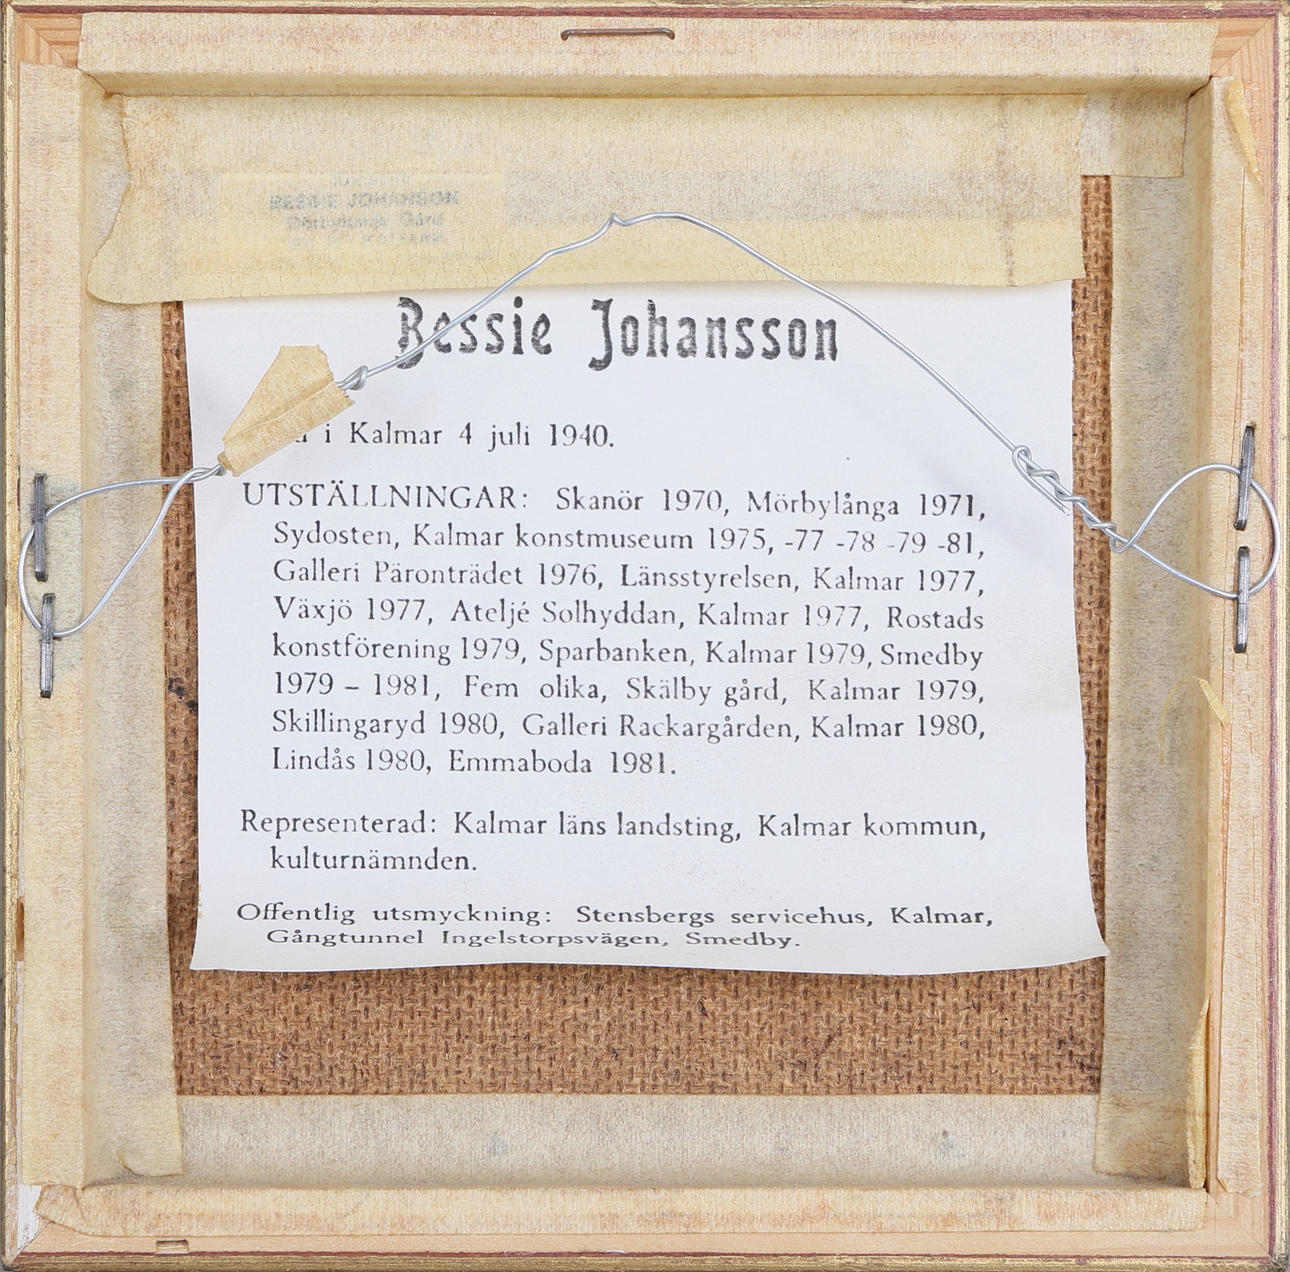 BESSIE JOHANSON
Gård
Bessie Johansson
i Kalmar 4 juli 1940.
UTSTÄLLNINGAR: Skanör 1970, Mörbylånga 1971,
Sydosten, Kalmar konstmuseum 1975, -77 -78 -79 -81,
Galleri Päronträdet 1976, Länsstyrelsen, Kalmar 1977,
Växjö 1977, Ateljé Solhyddan, Kalmar 1977, Rostads
konstförening 1979, Sparbanken, Kalmar 1979, Smedby
1979 – 1981, Fem olika, Skälby gård, Kalmar 1979,
Skillingaryd 1980, Galleri Rackargården, Kalmar 1980,
Lindås 1980, Emmaboda 1981.
Representerad: Kalmar läns landsting, Kalmar kommun,
kulturnämnden.
Offentlig utsmyckning: Stensbergs servicehus, Kalmar,
Gångtunnel Ingelstorpsvägen, Smedby.